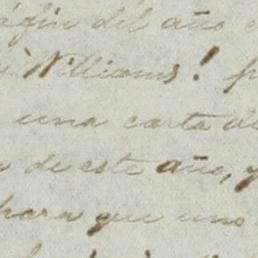 á fin del año
à Williams!
una carta de
de este año, y
para que uno